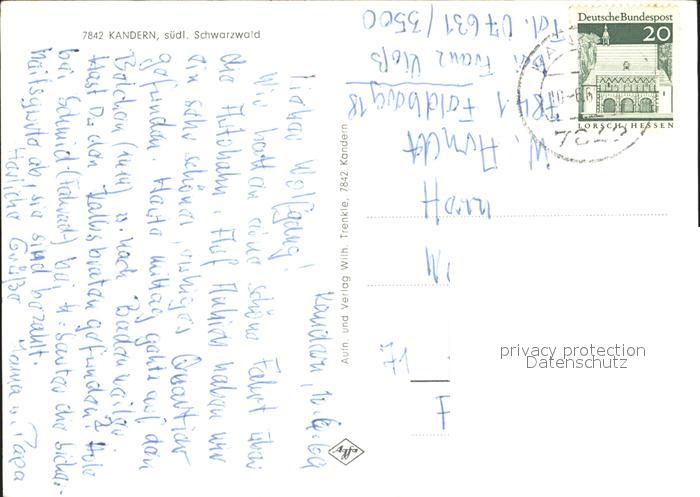 7842 KANDERN, südl. Schwarzwald
Kandern, 10.6.69
Lieber Wolfgang!
Wir hatten eine schöne Fahrt über
die Autobahn. Auf Anhieb haben wir
ein sehr schönes, ruhiges Quartier
gefunden. Heute mittag geht's auf den
Belchen (1414) u. nach Badenweiler.
Hast Du den Kalbsbraten gefunden? Hole
bei Schmid (Fahrrad) bei H. Sauter die
ab, sie sind bezahlt.
Herzliche Grüße Mama u. Papa
Aufn. und Verlag Wilh. Trenkle, 7842 Kandern
afku
Deutsche Bundespost
20
LORSCH/HESSEN
Herrn
W.
7841 Feldberg 18
Bei Franz
Tel. 07631/3500
71
privacy protection
Datenschutz